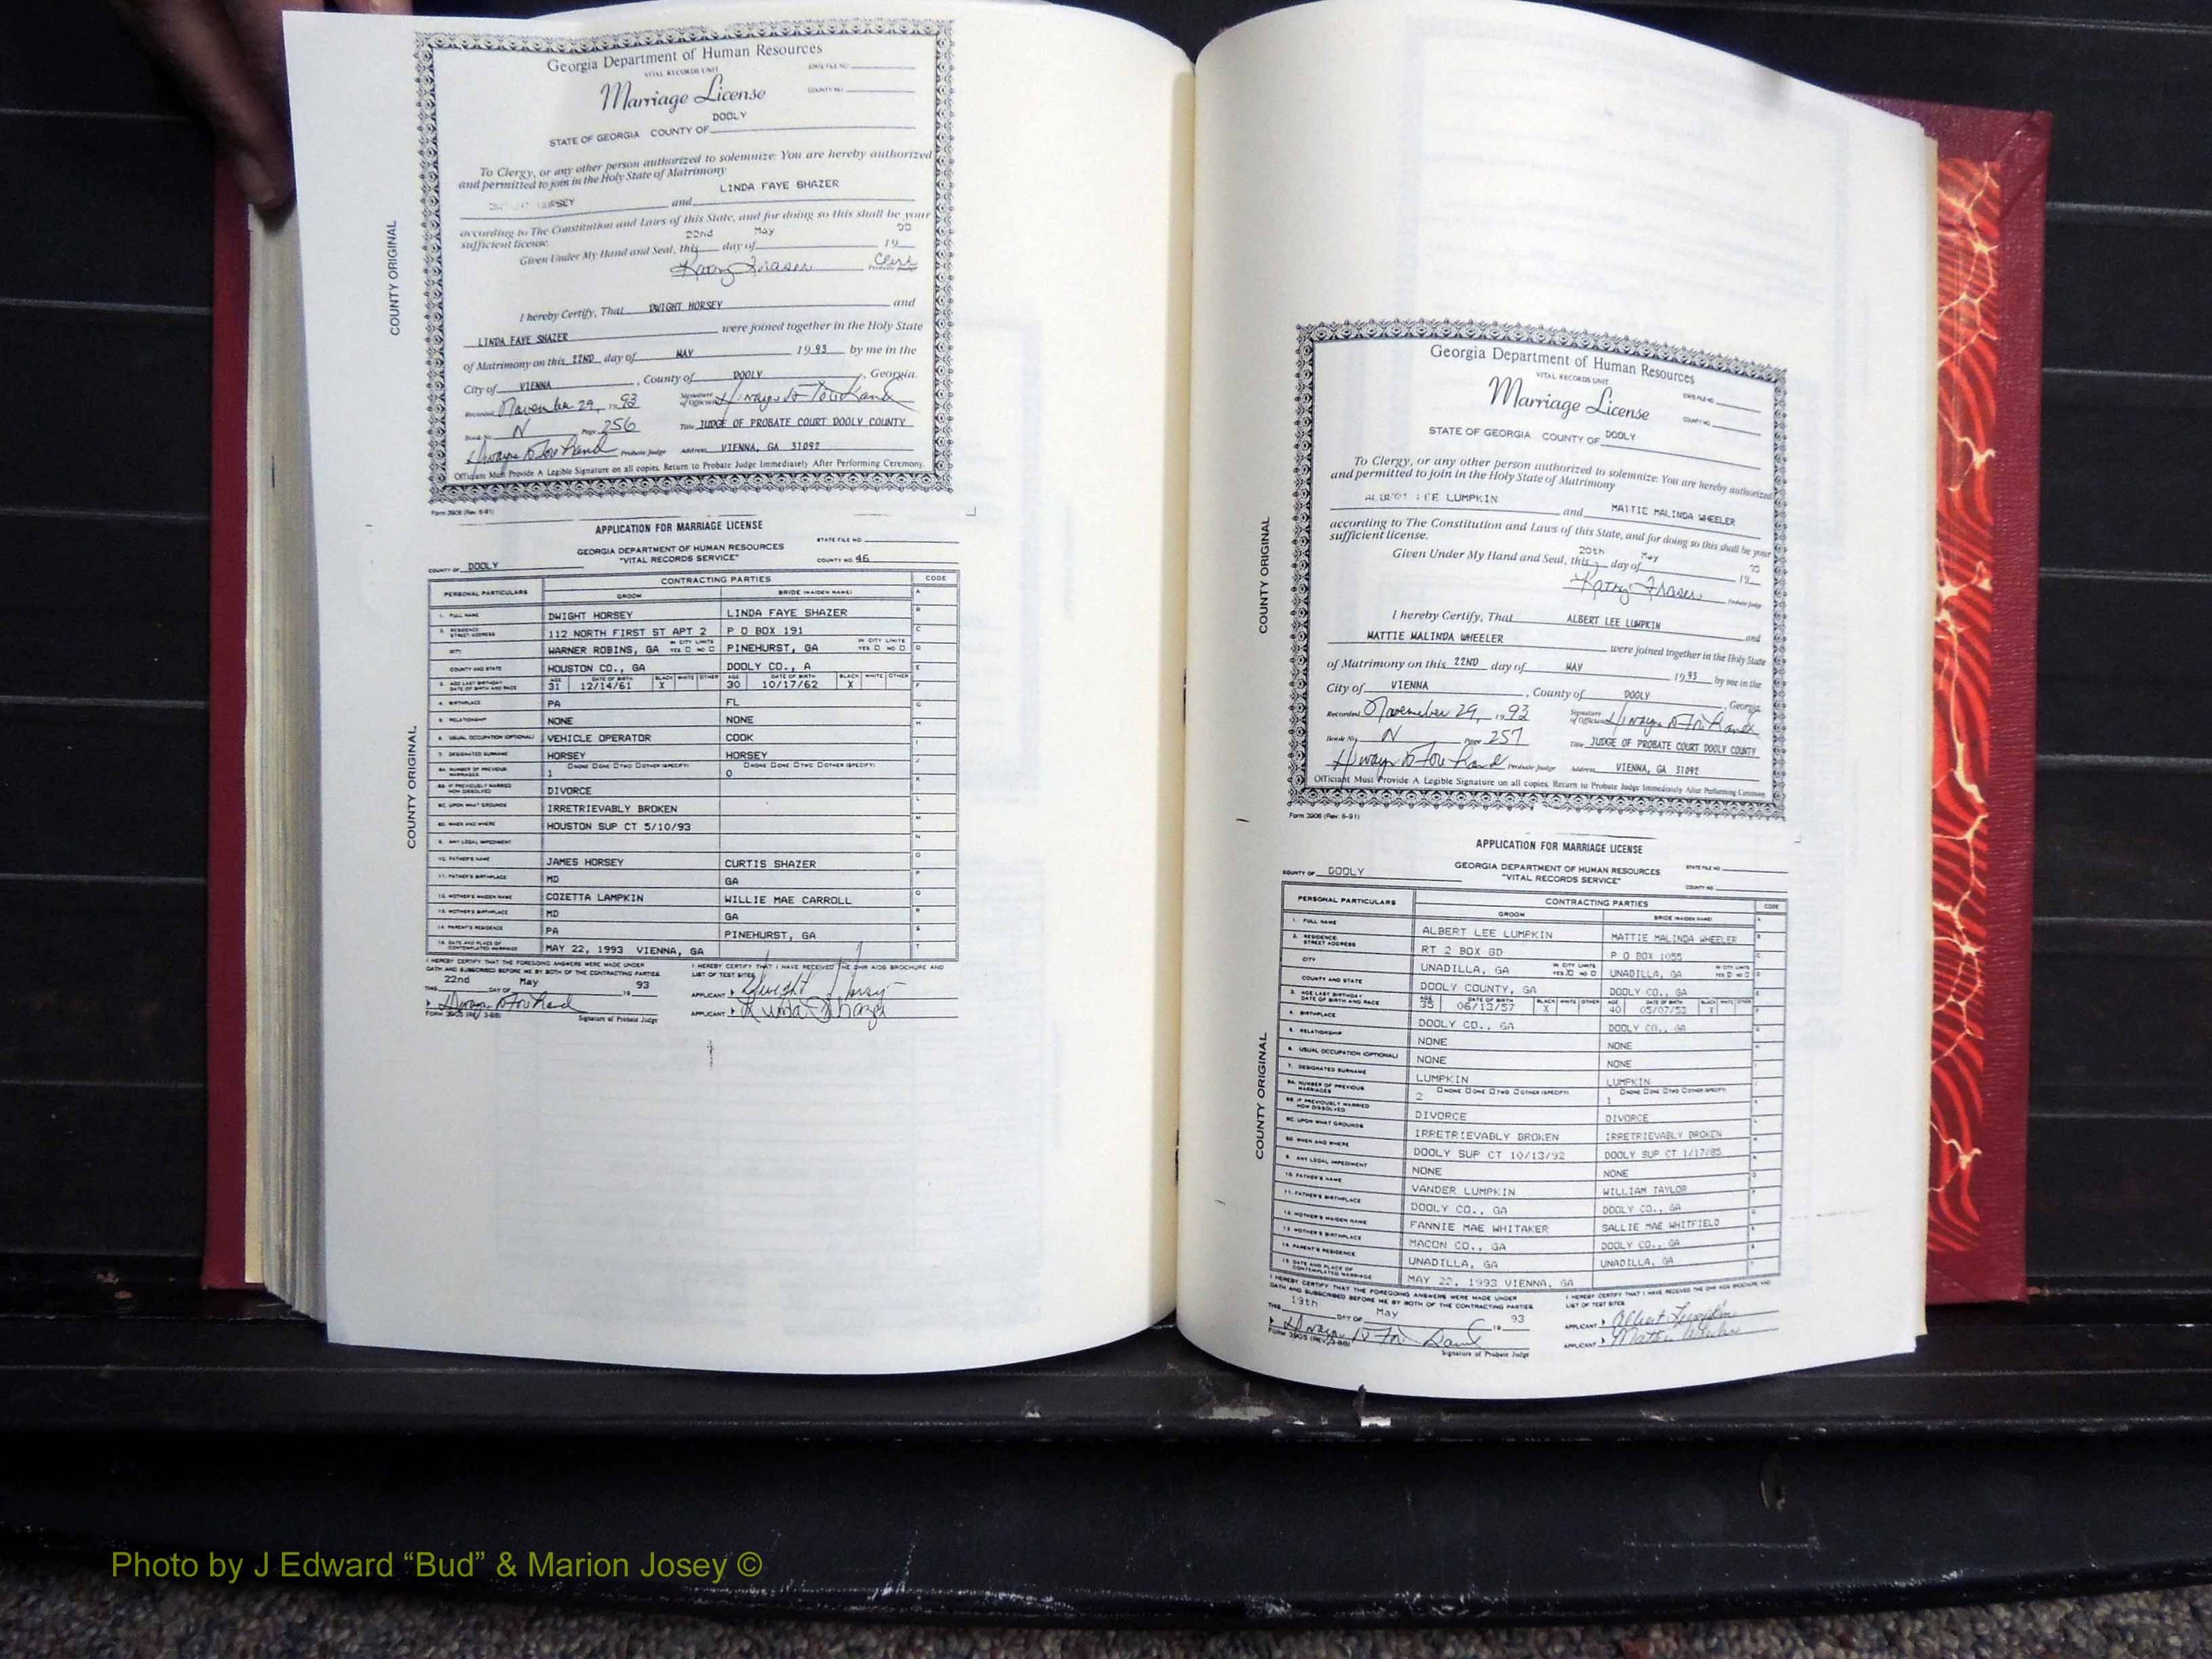 Georgia Department of Human Resources
VITAL RECORDS UNIT
STATE FILE NO.
Marriage License
COUNTY NO.
DOOLY
STATE OF GEORGIA COUNTY OF
To Clergy, or any other person authorized to solemnize: You are hereby authorized
and permitted to join in the Holy State of Matrimony
LINDA FAYE SHAZER
HORSEY and
according to The Constitution and Laws of this State, and for doing so this shall be your
sufficient license.
22nd May
Given Under My Hand and Seal, this day of 19
Kathy Fraser Clerk
Probate Judge
I hereby Certify, That DWIGHT HORSEY and
LINDA FAYE SHAZER were joined together in the Holy State
of Matrimony on this 22ND day of MAY 19 93 by me in the
City of VIENNA , County of DOOLY , Georgia.
Recorded November 29, 19 93 Signature of Officiant
Book No. N Page 256 Title JUDGE OF PROBATE COURT DOOLY COUNTY
Probate Judge Address VIENNA, GA 31092
Officiant Must Provide A Legible Signature on all copies. Return to Probate Judge Immediately After Performing Ceremony.
Form 3906 (Rev. 6-91)
COUNTY ORIGINAL
APPLICATION FOR MARRIAGE LICENSE
STATE FILE NO.
GEORGIA DEPARTMENT OF HUMAN RESOURCES
"VITAL RECORDS SERVICE"
COUNTY OF DOOLY COUNTY NO. 46
PERSONAL PARTICULARS CONTRACTING PARTIES CODE
GROOM BRIDE (MAIDEN NAME)
1. FULL NAME DWIGHT HORSEY LINDA FAYE SHAZER
2. RESIDENCE STREET ADDRESS 112 NORTH FIRST ST APT 2 P O BOX 191
CITY WARNER ROBINS, GA IN CITY LIMITS YES NO PINEHURST, GA IN CITY LIMITS YES NO
COUNTY AND STATE HOUSTON CO., GA DOOLY CO., A
3. AGE LAST BIRTHDAY DATE OF BIRTH AND RACE AGE 31 DATE OF BIRTH 12/14/61 BLACK X WHITE OTHER AGE 30 DATE OF BIRTH 10/17/62 BLACK X WHITE OTHER
4. BIRTHPLACE PA FL
5. RELATIONSHIP NONE NONE
6. USUAL OCCUPATION (OPTIONAL) VEHICLE OPERATOR COOK
7. DESIGNATED SURNAME HORSEY HORSEY
8A. NUMBER OF PREVIOUS MARRIAGES 1 NONE ONE TWO OTHER (SPECIFY) 0 NONE ONE TWO OTHER (SPECIFY)
8B. IF PREVIOUSLY MARRIED HOW DISSOLVED DIVORCE
8C. UPON WHAT GROUNDS IRRETRIEVABLY BROKEN
8D. WHEN AND WHERE HOUSTON SUP CT 5/10/93
9. ANY LEGAL IMPEDIMENT
10. FATHER'S NAME JAMES HORSEY CURTIS SHAZER
11. FATHER'S BIRTHPLACE MD GA
12. MOTHER'S MAIDEN NAME COZETTA LAMPKIN WILLIE MAE CARROLL
13. MOTHER'S BIRTHPLACE MD GA
14. PARENT'S RESIDENCE PA PINEHURST, GA
15. DATE AND PLACE OF CONTEMPLATED MARRIAGE MAY 22, 1993 VIENNA, GA
I HEREBY CERTIFY THAT THE FOREGOING ANSWERS WERE MADE UNDER
OATH AND SUBSCRIBED BEFORE ME BY BOTH OF THE CONTRACTING PARTIES.
THIS 22nd DAY OF May 19 93
Signature of Probate Judge
FORM 3905 (REV. 3-88)
I HEREBY CERTIFY THAT I HAVE RECEIVED THE DHR AIDS BROCHURE AND
LIST OF TEST SITES
APPLICANT Dwight Horsey
APPLICANT Linda Shazer
COUNTY ORIGINAL
Georgia Department of Human Resources
VITAL RECORDS UNIT
STATE FILE NO.
Marriage License
COUNTY NO.
STATE OF GEORGIA COUNTY OF DOOLY
To Clergy, or any other person authorized to solemnize: You are hereby authorized
and permitted to join in the Holy State of Matrimony
ALBERT LEE LUMPKIN and MAITIE MALINDA WHEELER
according to The Constitution and Laws of this State, and for doing so this shall be your
sufficient license.
20th May
Given Under My Hand and Seal, this day of 19
Kathy Fraser
Probate Judge
I hereby Certify, That ALBERT LEE LUMPKIN and
MATTIE MALINDA WHEELER were joined together in the Holy State
of Matrimony on this 22ND day of MAY 19 93 by me in the
City of VIENNA , County of DOOLY , Georgia.
Recorded November 29, 19 93 Signature of Officiant
Book No. N Page 257 Title JUDGE OF PROBATE COURT DOOLY COUNTY
Probate Judge Address VIENNA, GA 31092
Officiant Must Provide A Legible Signature on all copies. Return to Probate Judge Immediately After Performing Ceremony.
Form 3906 (Rev. 6-91)
COUNTY ORIGINAL
APPLICATION FOR MARRIAGE LICENSE
GEORGIA DEPARTMENT OF HUMAN RESOURCES
"VITAL RECORDS SERVICE"
STATE FILE NO.
COUNTY OF DOOLY COUNTY NO.
PERSONAL PARTICULARS CONTRACTING PARTIES CODE
GROOM BRIDE (MAIDEN NAME)
1. FULL NAME ALBERT LEE LUMPKIN MATTIE MALINDA WHEELER
2. RESIDENCE STREET ADDRESS RT 2 BOX 8D P O BOX 1055
CITY UNADILLA, GA IN CITY LIMITS YES NO UNADILLA, GA IN CITY LIMITS YES NO
COUNTY AND STATE DOOLY COUNTY, GA DOOLY CO., GA
3. AGE LAST BIRTHDAY DATE OF BIRTH AND RACE AGE 35 DATE OF BIRTH 06/13/57 BLACK X WHITE OTHER AGE 40 DATE OF BIRTH 05/07/53 BLACK X WHITE OTHER
4. BIRTHPLACE DOOLY CO., GA DOOLY CO., GA
5. RELATIONSHIP NONE NONE
6. USUAL OCCUPATION (OPTIONAL) NONE NONE
7. DESIGNATED SURNAME LUMPKIN LUMPKIN
8A. NUMBER OF PREVIOUS MARRIAGES 2 NONE ONE TWO OTHER (SPECIFY) 1 NONE ONE TWO OTHER (SPECIFY)
8B. IF PREVIOUSLY MARRIED HOW DISSOLVED DIVORCE DIVORCE
8C. UPON WHAT GROUNDS IRRETRIEVABLY BROKEN IRRETRIEVABLY BROKEN
8D. WHEN AND WHERE DOOLY SUP CT 10/13/92 DOOLY SUP CT 1/17/85
9. ANY LEGAL IMPEDIMENT NONE NONE
10. FATHER'S NAME VANDER LUMPKIN WILLIAM TAYLOR
11. FATHER'S BIRTHPLACE DOOLY CO., GA DOOLY CO., GA
12. MOTHER'S MAIDEN NAME FANNIE MAE WHITAKER SALLIE MAE WHITFIELD
13. MOTHER'S BIRTHPLACE MACON CO., GA DOOLY CO., GA
14. PARENT'S RESIDENCE UNADILLA, GA UNADILLA, GA
15. DATE AND PLACE OF CONTEMPLATED MARRIAGE MAY 22, 1993 VIENNA, GA
I HEREBY CERTIFY THAT THE FOREGOING ANSWERS WERE MADE UNDER
OATH AND SUBSCRIBED BEFORE ME BY BOTH OF THE CONTRACTING PARTIES
THIS 19th DAY OF May 19 93
Signature of Probate Judge
FORM 3905 (REV. 3-88)
I HEREBY CERTIFY THAT I HAVE RECEIVED THE DHR AIDS BROCHURE AND
LIST OF TEST SITES
APPLICANT Albert Lumpkin
APPLICANT Mattie Wheeler
COUNTY ORIGINAL
Photo by J Edward “Bud” & Marion Josey ©